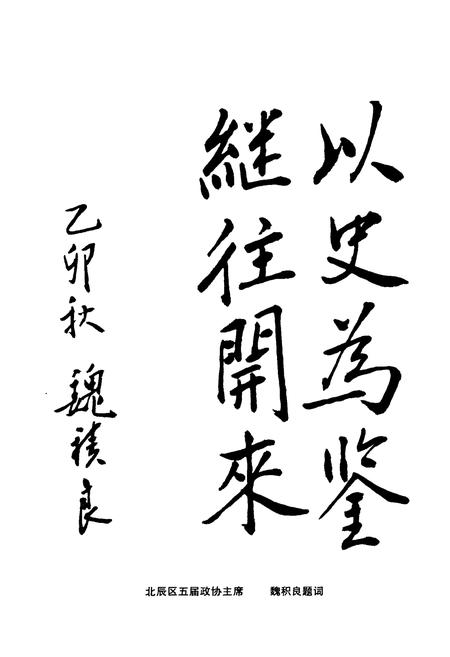 以史為鉴
継往開來
乙卯秋 魏積良
北辰区五届政协主席 魏积良题词